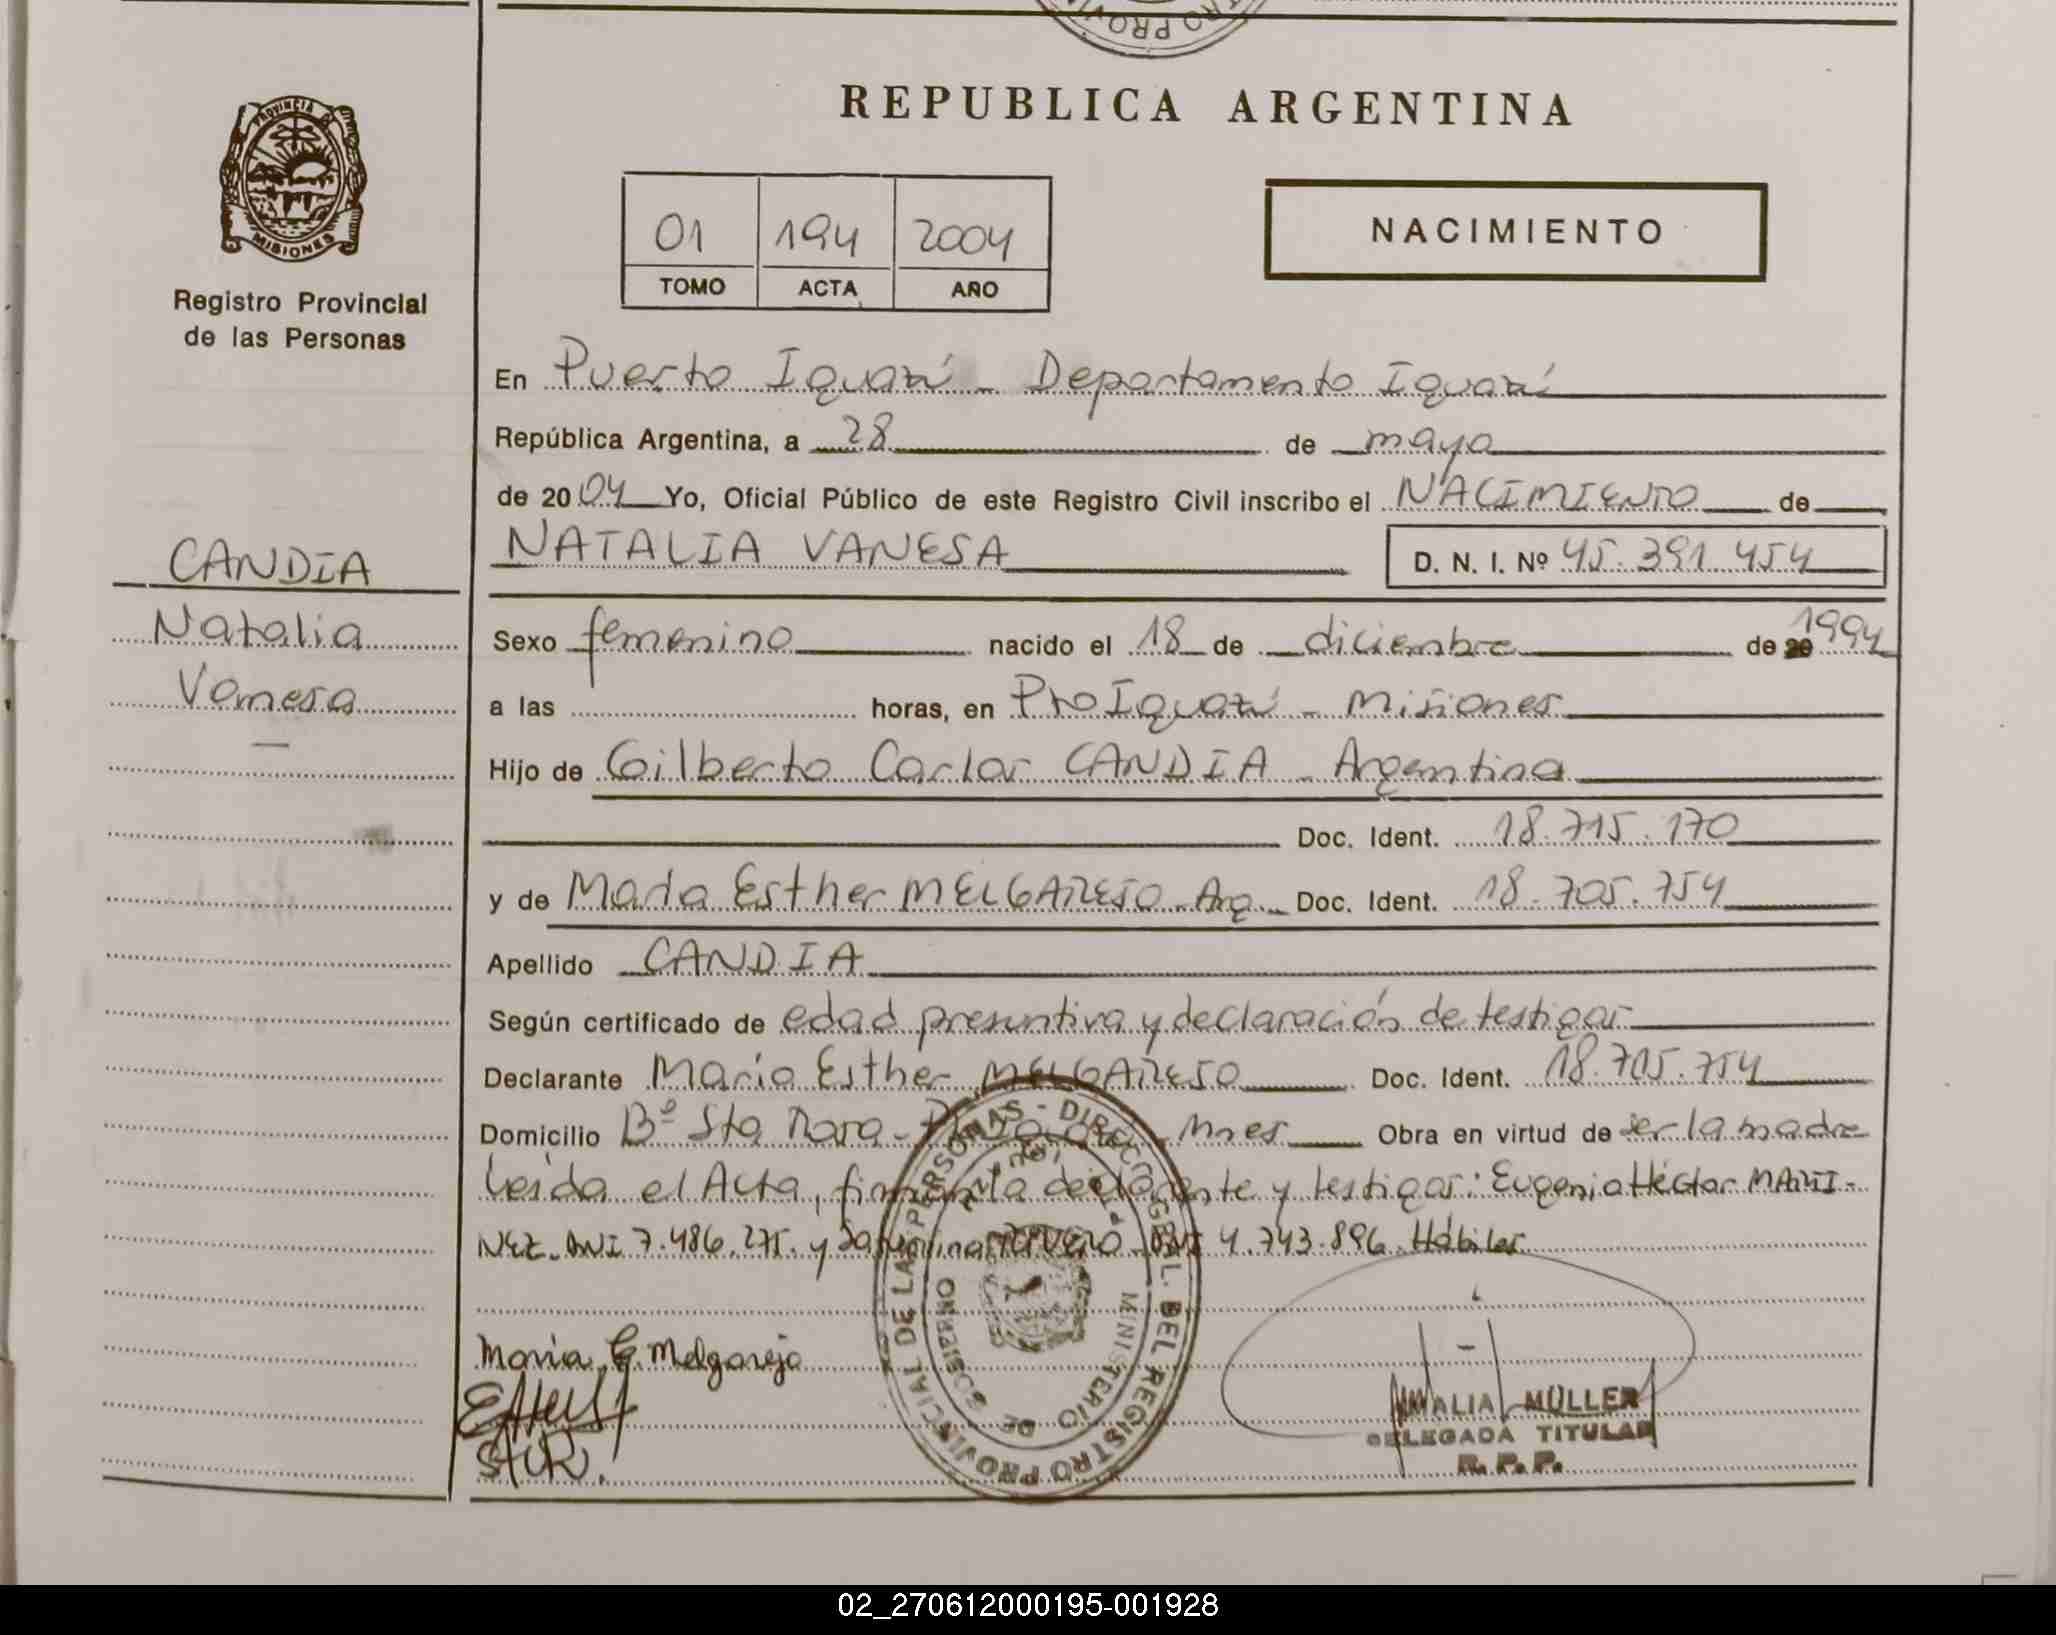 REPUBLICA ARGENTINA
PROVINCIA DE
MISIONES
Registro Provincial
de las Personas
01 194 2004
TOMO ACTA AÑO
NACIMIENTO
En Puerto Iguazú - Departamento Iguazú
República Argentina, a 28 de mayo
de 2004 Yo, Oficial Público de este Registro Civil inscribo el NACIMIENTO de
NATALIA VANESA D. N. I. Nº 45.391.454
CANDIA
Natalia
Vanesa
Sexo femenino nacido el 18 de diciembre de 1994
a las horas, en Pto Iguazú - Misiones
Hijo de Gilberto Carlos CANDIA - Argentina
Doc. Ident. 18.715.170
y de María Esther MELGAREJO - Arg. Doc. Ident. 18.705.754
Apellido CANDIA
Según certificado de edad presuntiva y declaración de testigos
Declarante María Esther MELGAREJO Doc. Ident. 18.705.754
Domicilio Bº Sta Rosa - Mnes Obra en virtud de ser la madre
Leída el Acta, firman la declarante y testigos: Eugenio Héctor MARTI-
NEZ - DNI 7.486.275. y DNI 4.743.896. Hábiles
María E. Melgarejo
AMALIA MÜLLER
DELEGADA TITULAR
R. P. P.
DIREC. GRAL. DEL REGISTRO PROVINCIAL DE LAS PERSONAS -
MINISTERIO DE GOBIERNO
02_270612000195-001928